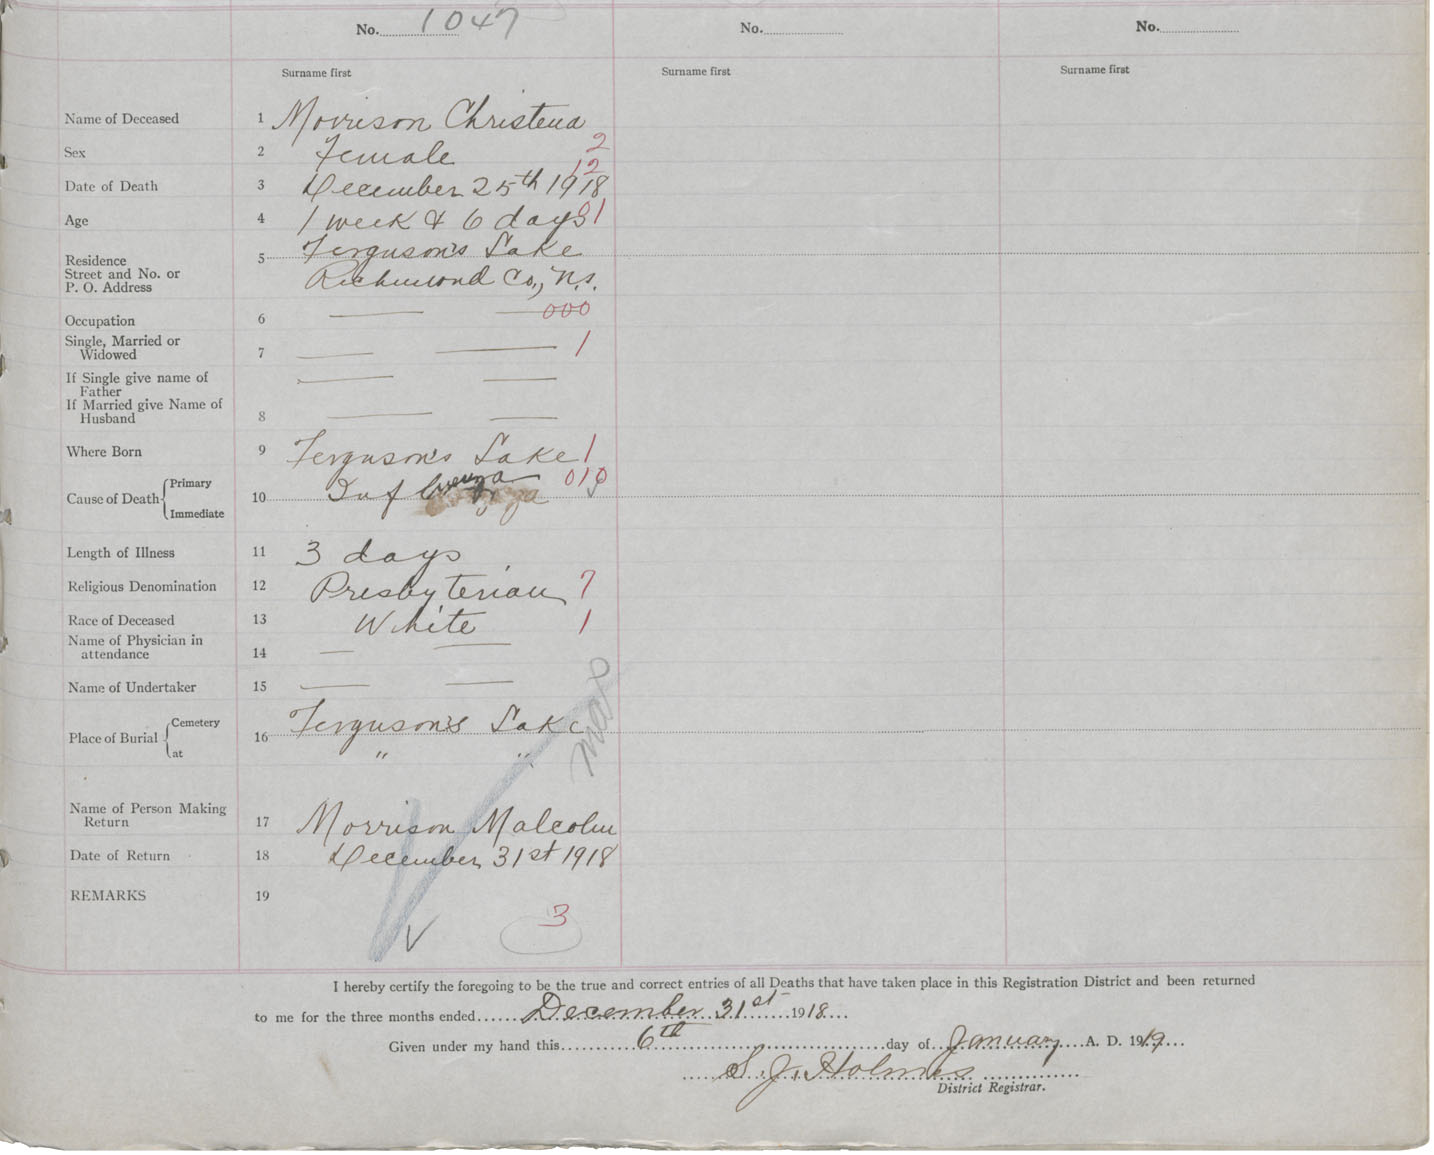 No. 1047 No. No.
Surname first Surname first Surname first
Name of Deceased 1 Morrison Christena
Sex 2 Female 2
Date of Death 3 December 25th 1918 12
Age 4 1 week & 6 days 01
Residence 5 Ferguson's Lake
Street and No. or
P. O. Address Richmond Co., N.S.
Occupation 6 000
Single, Married or
Widowed 7 1
If Single give name of
Father
If Married give Name of
Husband 8
Where Born 9 Ferguson's Lake 1
Cause of Death Primary 10 Influenza 010
Immediate
Length of Illness 11 3 days
Religious Denomination 12 Presbyterian 7
Race of Deceased 13 White 1
Name of Physician in
attendance 14
Name of Undertaker 15
Place of Burial Cemetery 16 Ferguson's Lake
at " "
Name of Person Making
Return 17 Morrison Malcolm
Date of Return 18 December 31st 1918
REMARKS 19
3
I hereby certify the foregoing to be the true and correct entries of all Deaths that have taken place in this Registration District and been returned
to me for the three months ended December 31st 1918
Given under my hand this 6th day of January A. D. 1919
S. J. Holmes
District Registrar.